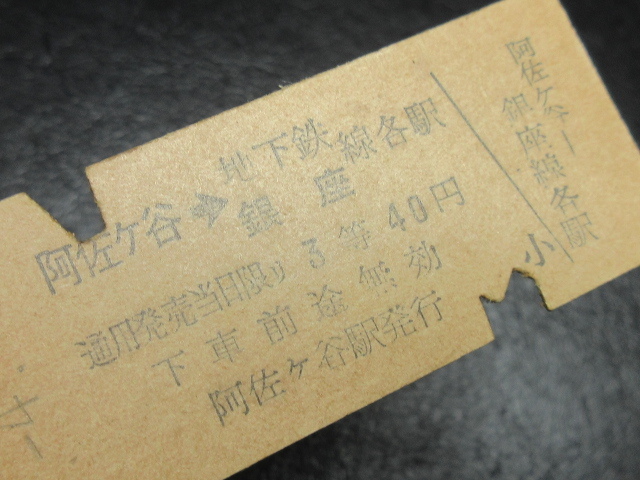 阿佐ケ谷➡地下鉄銀座線各駅
通用発売当日限り 3等 40円
下車前途無効
阿佐ヶ谷駅発行
阿佐ケ谷―
銀座線各駅
小